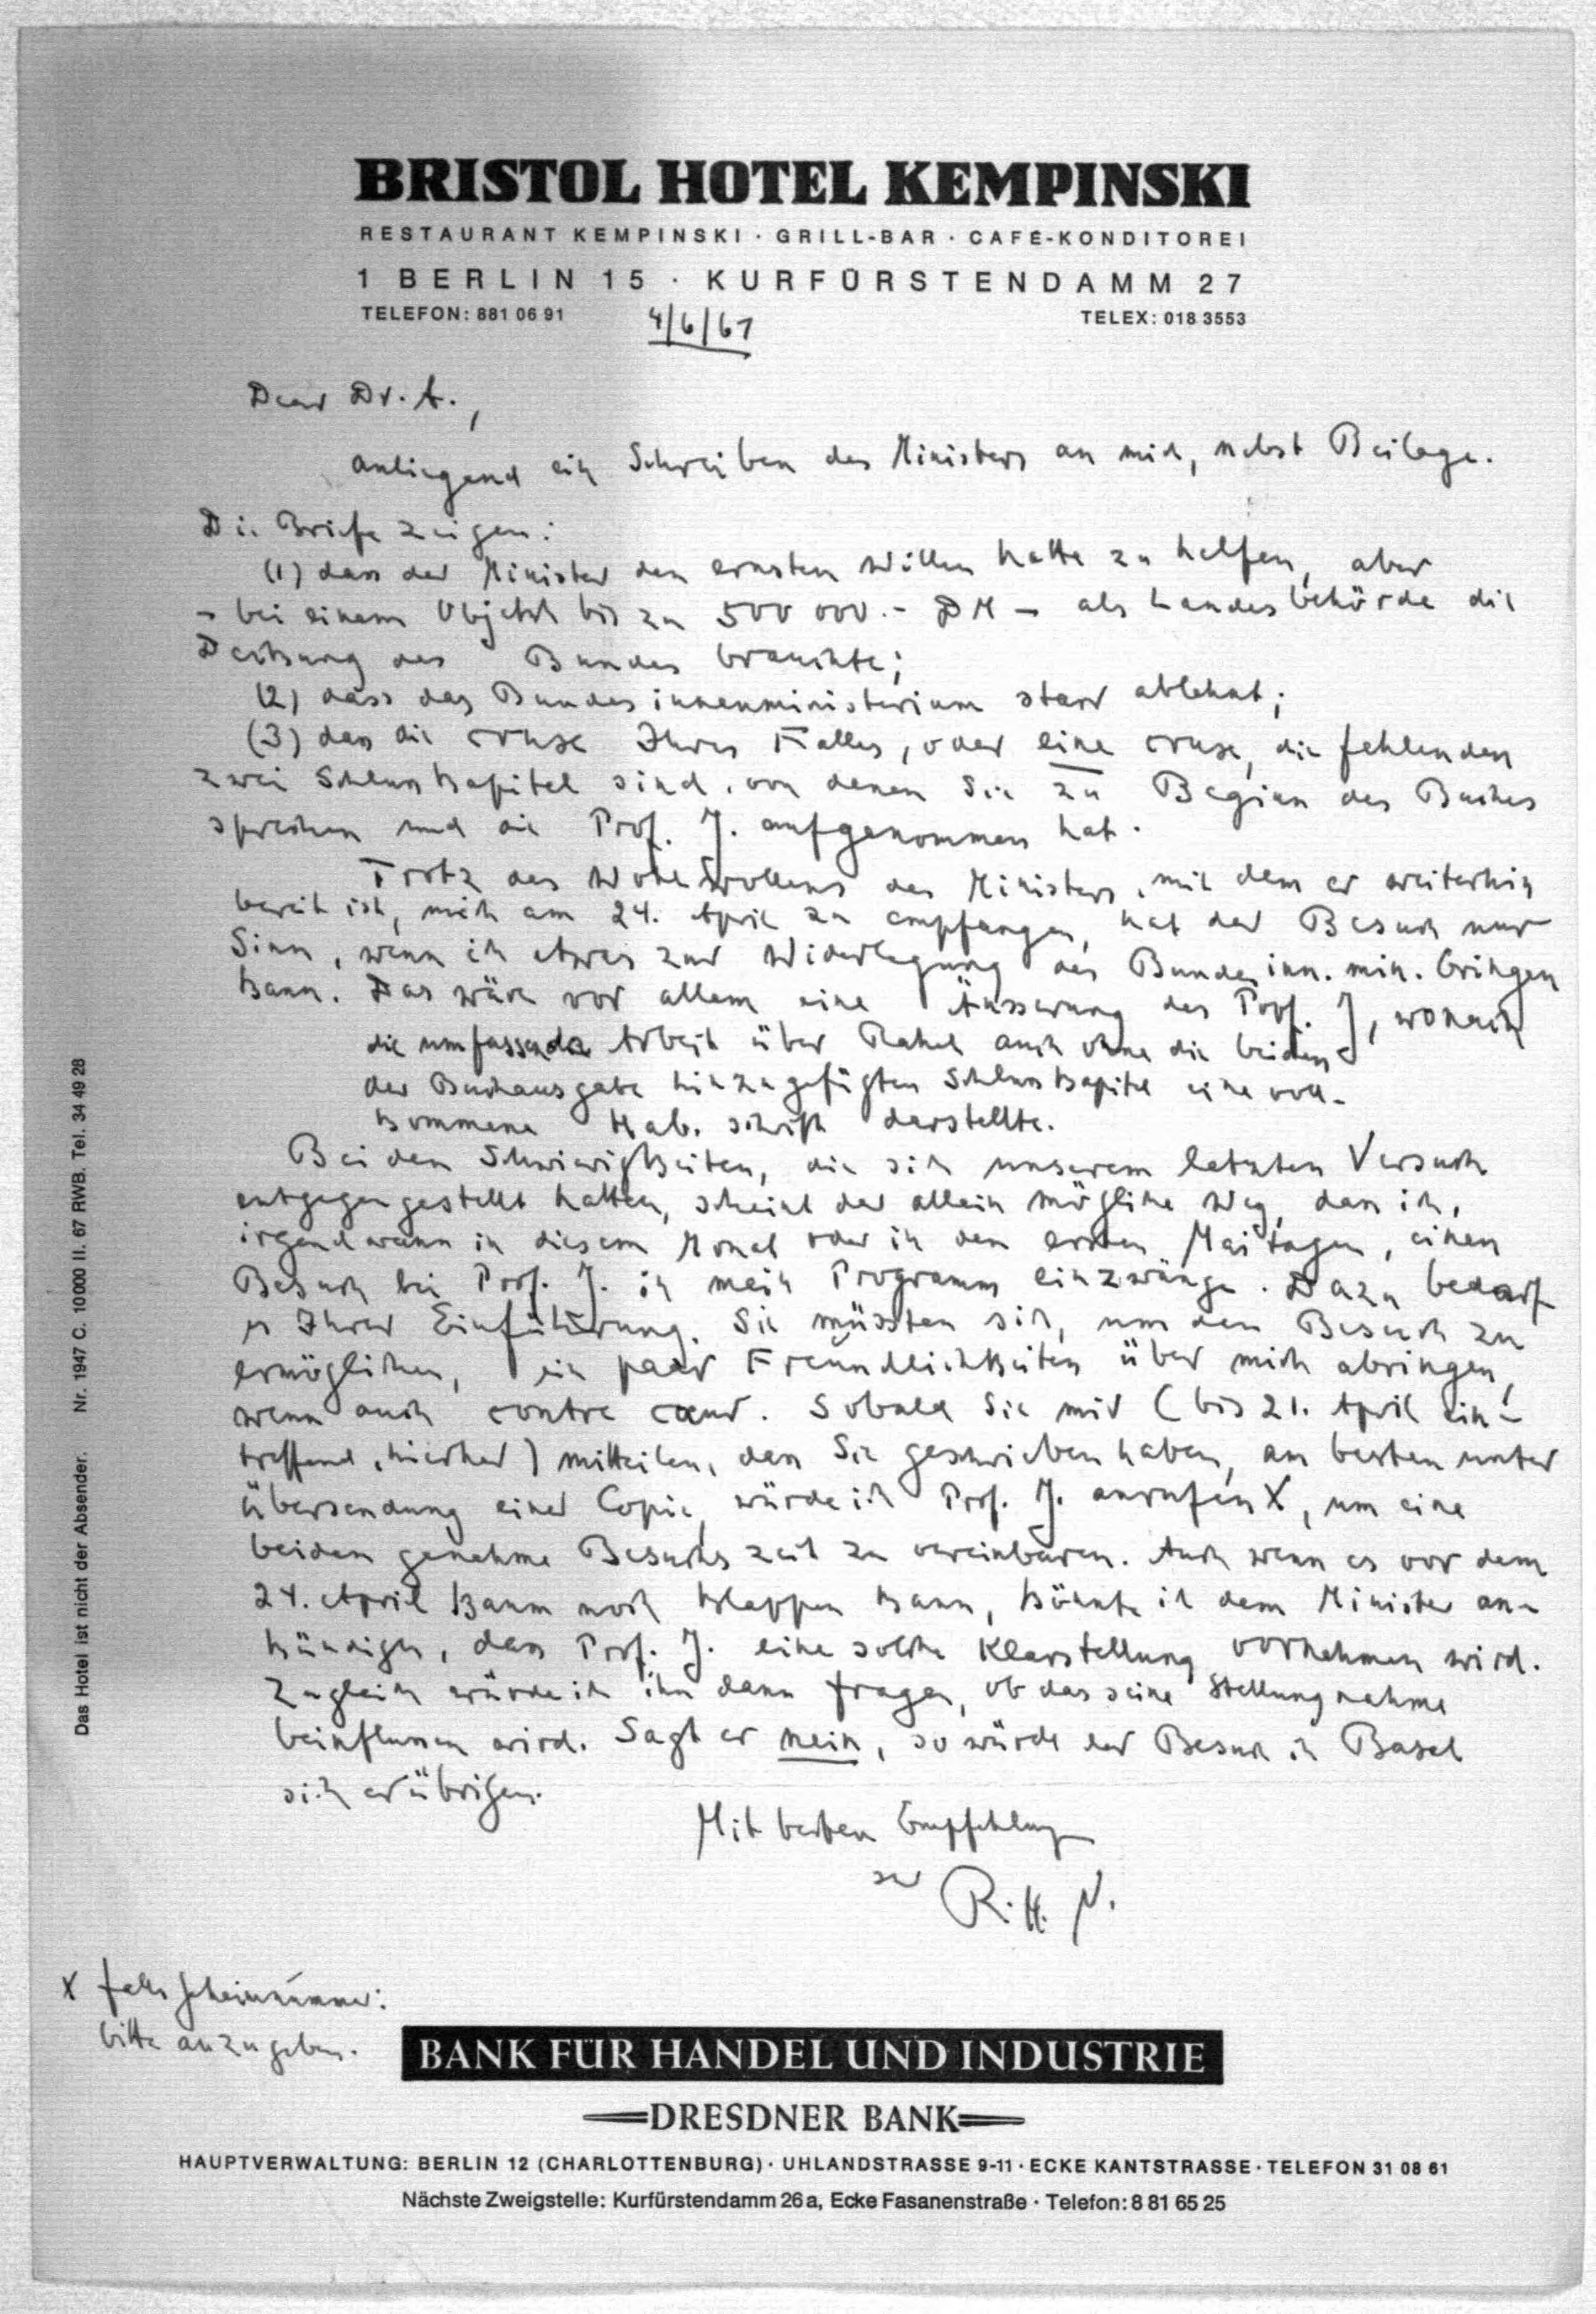 BRISTOL HOTEL KEMPINSKI
RESTAURANT KEMPINSKI · GRILL-BAR · CAFÉ-KONDITOREI
1 BERLIN 15 · KURFÜRSTENDAMM 27
TELEFON: 881 06 91
4/6/67
TELEX: 018 3553
Dear Dr. A.,
anliegend ein Schreiben des Ministers an mich, nebst Beilage.
Die Briefe zeigen:
(1) dass der Minister den ernsten Willen hatte zu helfen, aber
– bei einem Objekt bis zu 500 000.- DM – als Landesbehörde die
Deckung des Bundes brauchte;
(2) dass das Bundesinnenministerium starr ablehnt;
(3) dass die cruse Ihres Falles, oder eine cruse, die fehlenden
zwei Schlusskapitel sind, von denen Sie zu Beginn des Buches
sprechen und die Prof. J. aufgenommen hat.
Trotz des Wohlwollens des Ministers, mit dem er weiterhin
bereit ist, mich am 24. April zu empfangen, hat der Besuch nur
Sinn, wenn ich etwas zur Widerlegung des Bundesinn. min. bringen
kann. Das wäre vor allem eine Äusserung des Prof. J, wonach
die umfassende Arbeit über Rahel auch ohne die beiden
der Buchausgabe hinzugefügten Schlusskapitel eine voll-
kommene Hab. schrift darstellte.
Bei den Schwierigkeiten, die sich unserem letzten Versuch
entgegengestellt hatten, scheint der allein mögliche Weg, dass ich,
irgendwann in diesem Monat oder in den ersten Maitagen, einen
Besuch bei Prof. J. in mein Programm einzwänge. Dazu bedarf
es Ihrer Einführung. Sie müssten sich, um den Besuch zu
ermöglichen, ein paar Freundlichkeiten über mich abringen,
wenn auch contre cœur. Sobald Sie mir (bis 21. April ein-
treffend, hierher) mitteilen, dass Sie geschrieben haben, am besten unter
Übersendung einer Copie, würde ich Prof. J. anrufen X, um eine
beiden genehme Besuchszeit zu vereinbaren. Auch wenn es vor dem
24. April kaum noch klappen kann, könnte ich dem Minister an-
kündigen, dass Prof. J. eine solche Klarstellung vornehmen wird.
Zugleich würde ich ihn dann fragen, ob das seine Stellungnahme
beinflussen wird. Sagt er nein, so würde der Besuch in Basel
sich erübrigen.
Mit besten Empfehlungen
R. H. N.
X falls Geheimnummer:
bitte anzugeben.
Das Hotel ist nicht der Absender. Nr. 1947 C. 10000 II. 67 RWB. Tel. 34 49 28
BANK FÜR HANDEL UND INDUSTRIE
DRESDNER BANK
HAUPTVERWALTUNG: BERLIN 12 (CHARLOTTENBURG) · UHLANDSTRASSE 9-11 · ECKE KANTSTRASSE · TELEFON 31 08 61
Nächste Zweigstelle: Kurfürstendamm 26a, Ecke Fasanenstraße · Telefon: 8 81 65 25